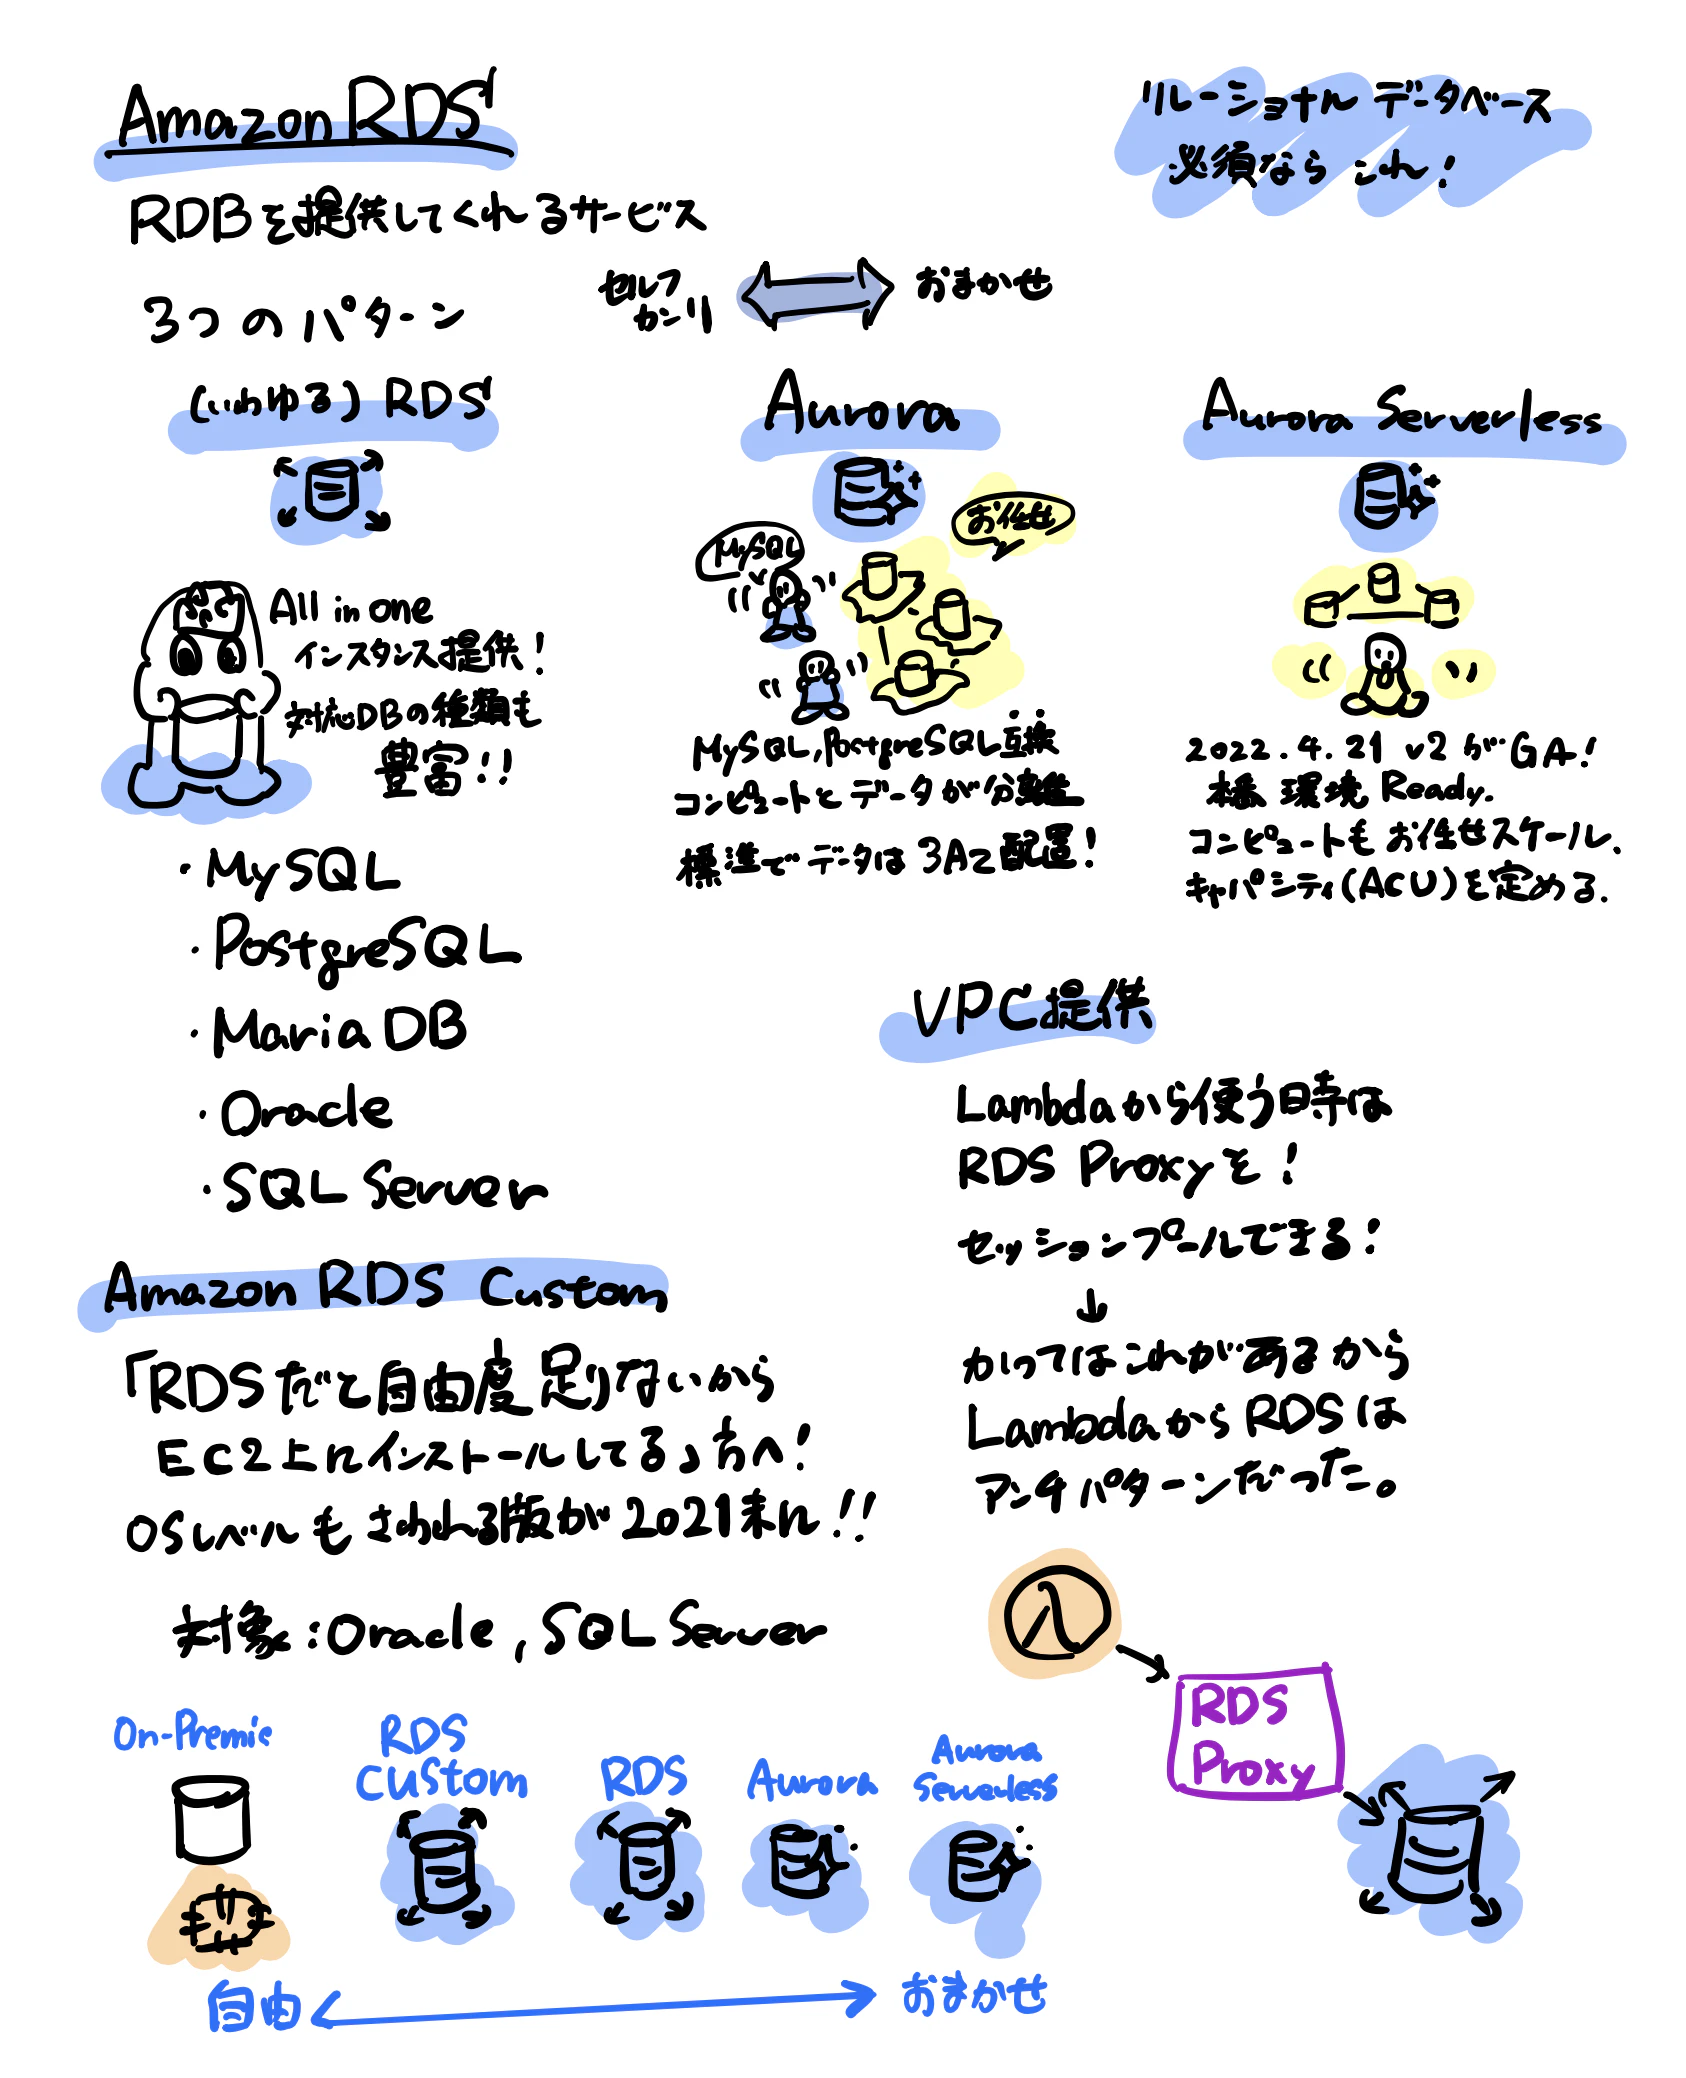 Amazon RDS
リレーショナル データベース
必須なら これ!
RDBを提供してくれるサービス
3つのパターン
セルフ
カンリ
おまかせ
(いわゆる) RDS
All in one
インスタンス提供!
対応DBの種類も
豊富!!
・MySQL
・PostgreSQL
・MariaDB
・Oracle
・SQL Server
Aurora
お任せ
MySQL
MySQL, PostgreSQL互換
コンピュートとデータが分離
標準でデータは3AZ配置!
Aurora Serverless
2022.4.21 v2がGA!
本番 環境 Ready.
コンピュートもお任せスケール.
キャパシティ(ACU)を定める.
VPC提供
Lambdaから使う時は
RDS Proxyを!
セッションプールできる!
↓
かつてはこれがあるから
LambdaからRDSは
アンチパターンだった。
λ
RDS
Proxy
Amazon RDS Custom
「RDSだと自由度足りないから
EC2上にインストールしてる」方へ!
OSレベルもさわれる版が2021末に!!
対象:Oracle, SQL Server
On-Premis
RDS
Custom
RDS
Aurora
Aurora
Serverless
自由
おまかせ